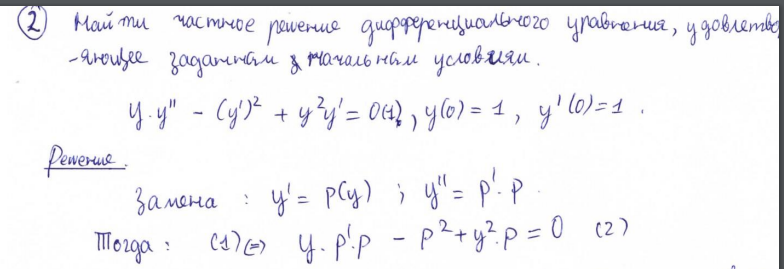 ② Найти частное решение дифференциального уравнения, удовлетво
-яющее заданным начальным условиям.
y·y'' - (y')² + y²y' = 0 (1), y(0) = 1, y'(0) = 1.
Решение.
Замена: y' = p(y); y'' = p'·p.
Тогда: (1) <=> y·p'·p - p² + y²·p = 0 (2)